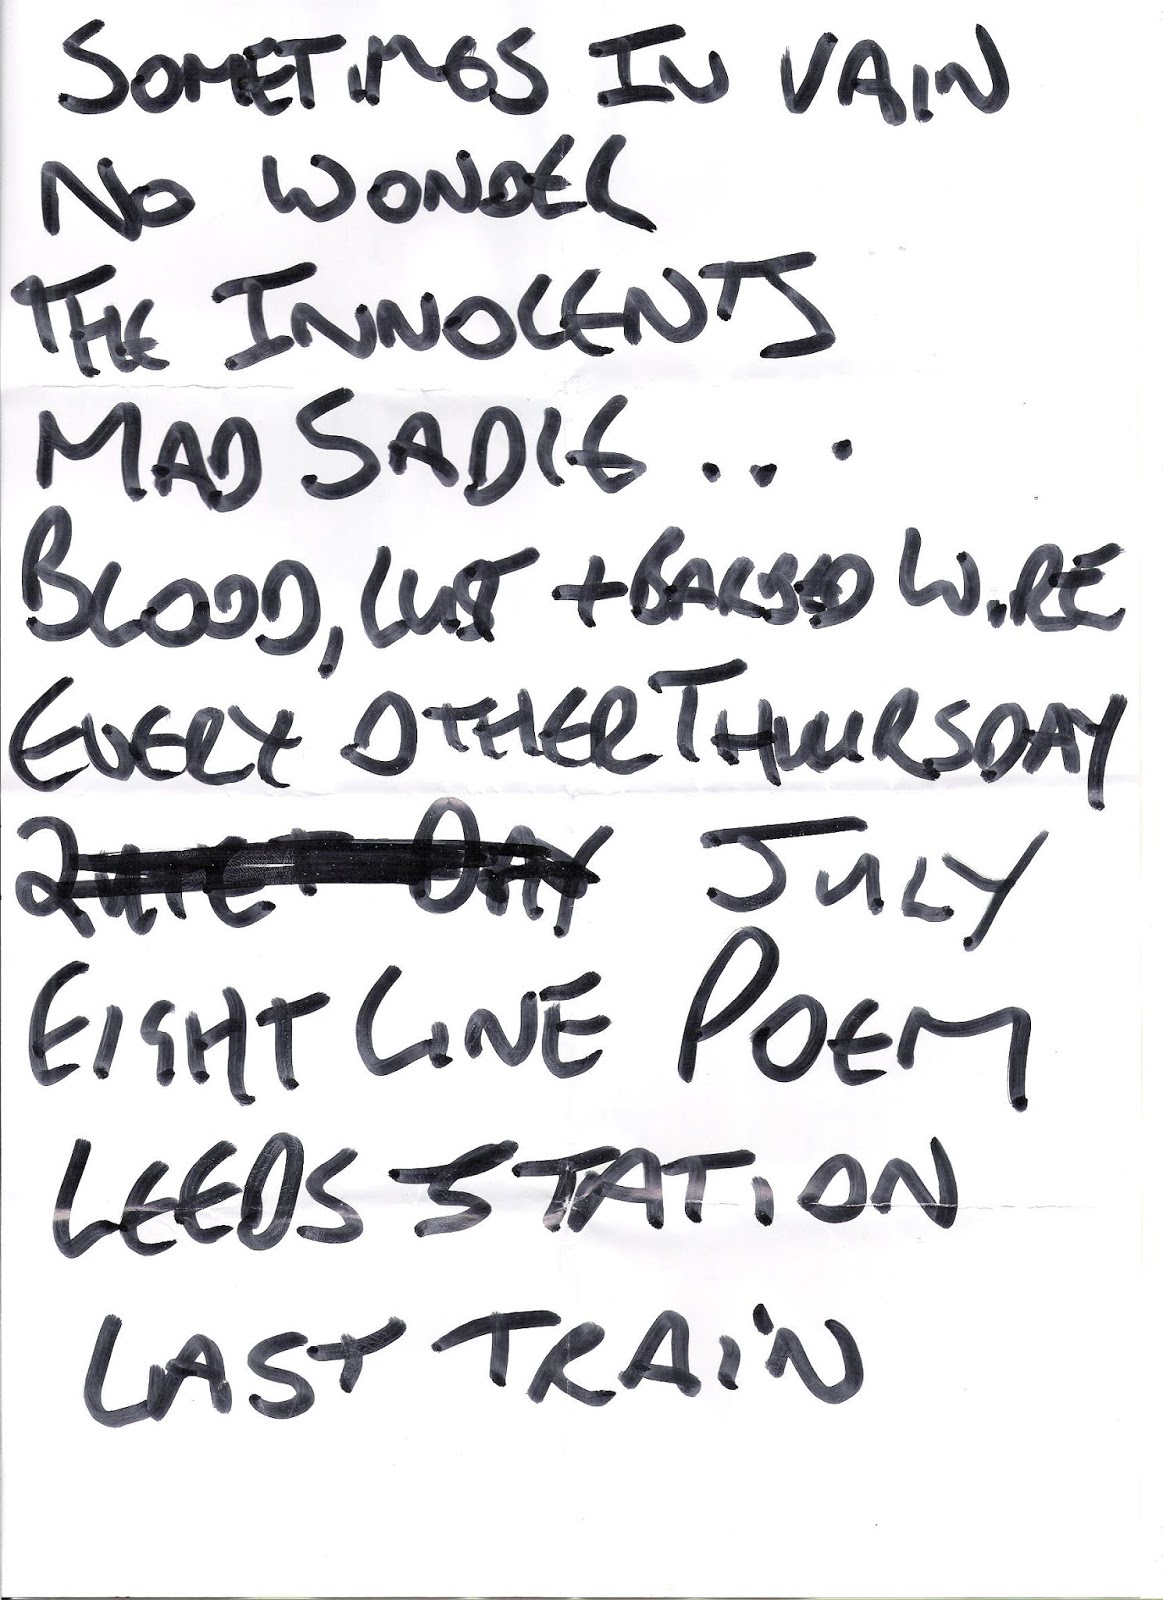 SOMETIMES IN VAIN
NO WONDER
THE INNOCENTS
MAD SADIE...
BLOOD, LUST + BARBED WIRE
EVERY OTHER THURSDAY
QUIET DAY JULY
EIGHT LINE POEM
LEEDS STATION
LAST TRAIN